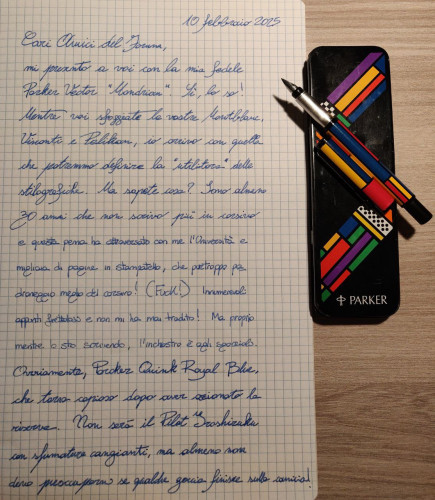 10 febbraio 2025
Cari Amici del Forum,
mi presento a voi con la mia fedele
Parker Vector "Mondrian". Sì, lo so!
Mentre voi sfoggiate la vostre Montblanc,
Visconti e Pelikan, io scrivo con quella
che potremmo definire la "utilitaria" delle
stilografiche. Ma sapete cosa? Sono almeno
30 anni che non scrivo più in corsivo
e questa penna ha attraversato con me l'Università e
migliaia di pagine in stampatello, che purtroppo pa
droneggio meglio del corsivo! (Fuck!) Innumerevoli
appunti frettolosi e non mi ha mai tradito! Ma proprio
mentre lo sto scrivendo, l'inchiostro è agli sgoccioli.
Ovviamente, Parker Quink Royal Blue,
che torna copioso dopo aver azionato la
riserva. Non sarà il Pilot Iroshizuku
con sfumature cangianti, ma almeno non
devo preoccuparmi se qualche goccia finisce sulla camicia!
PARKER